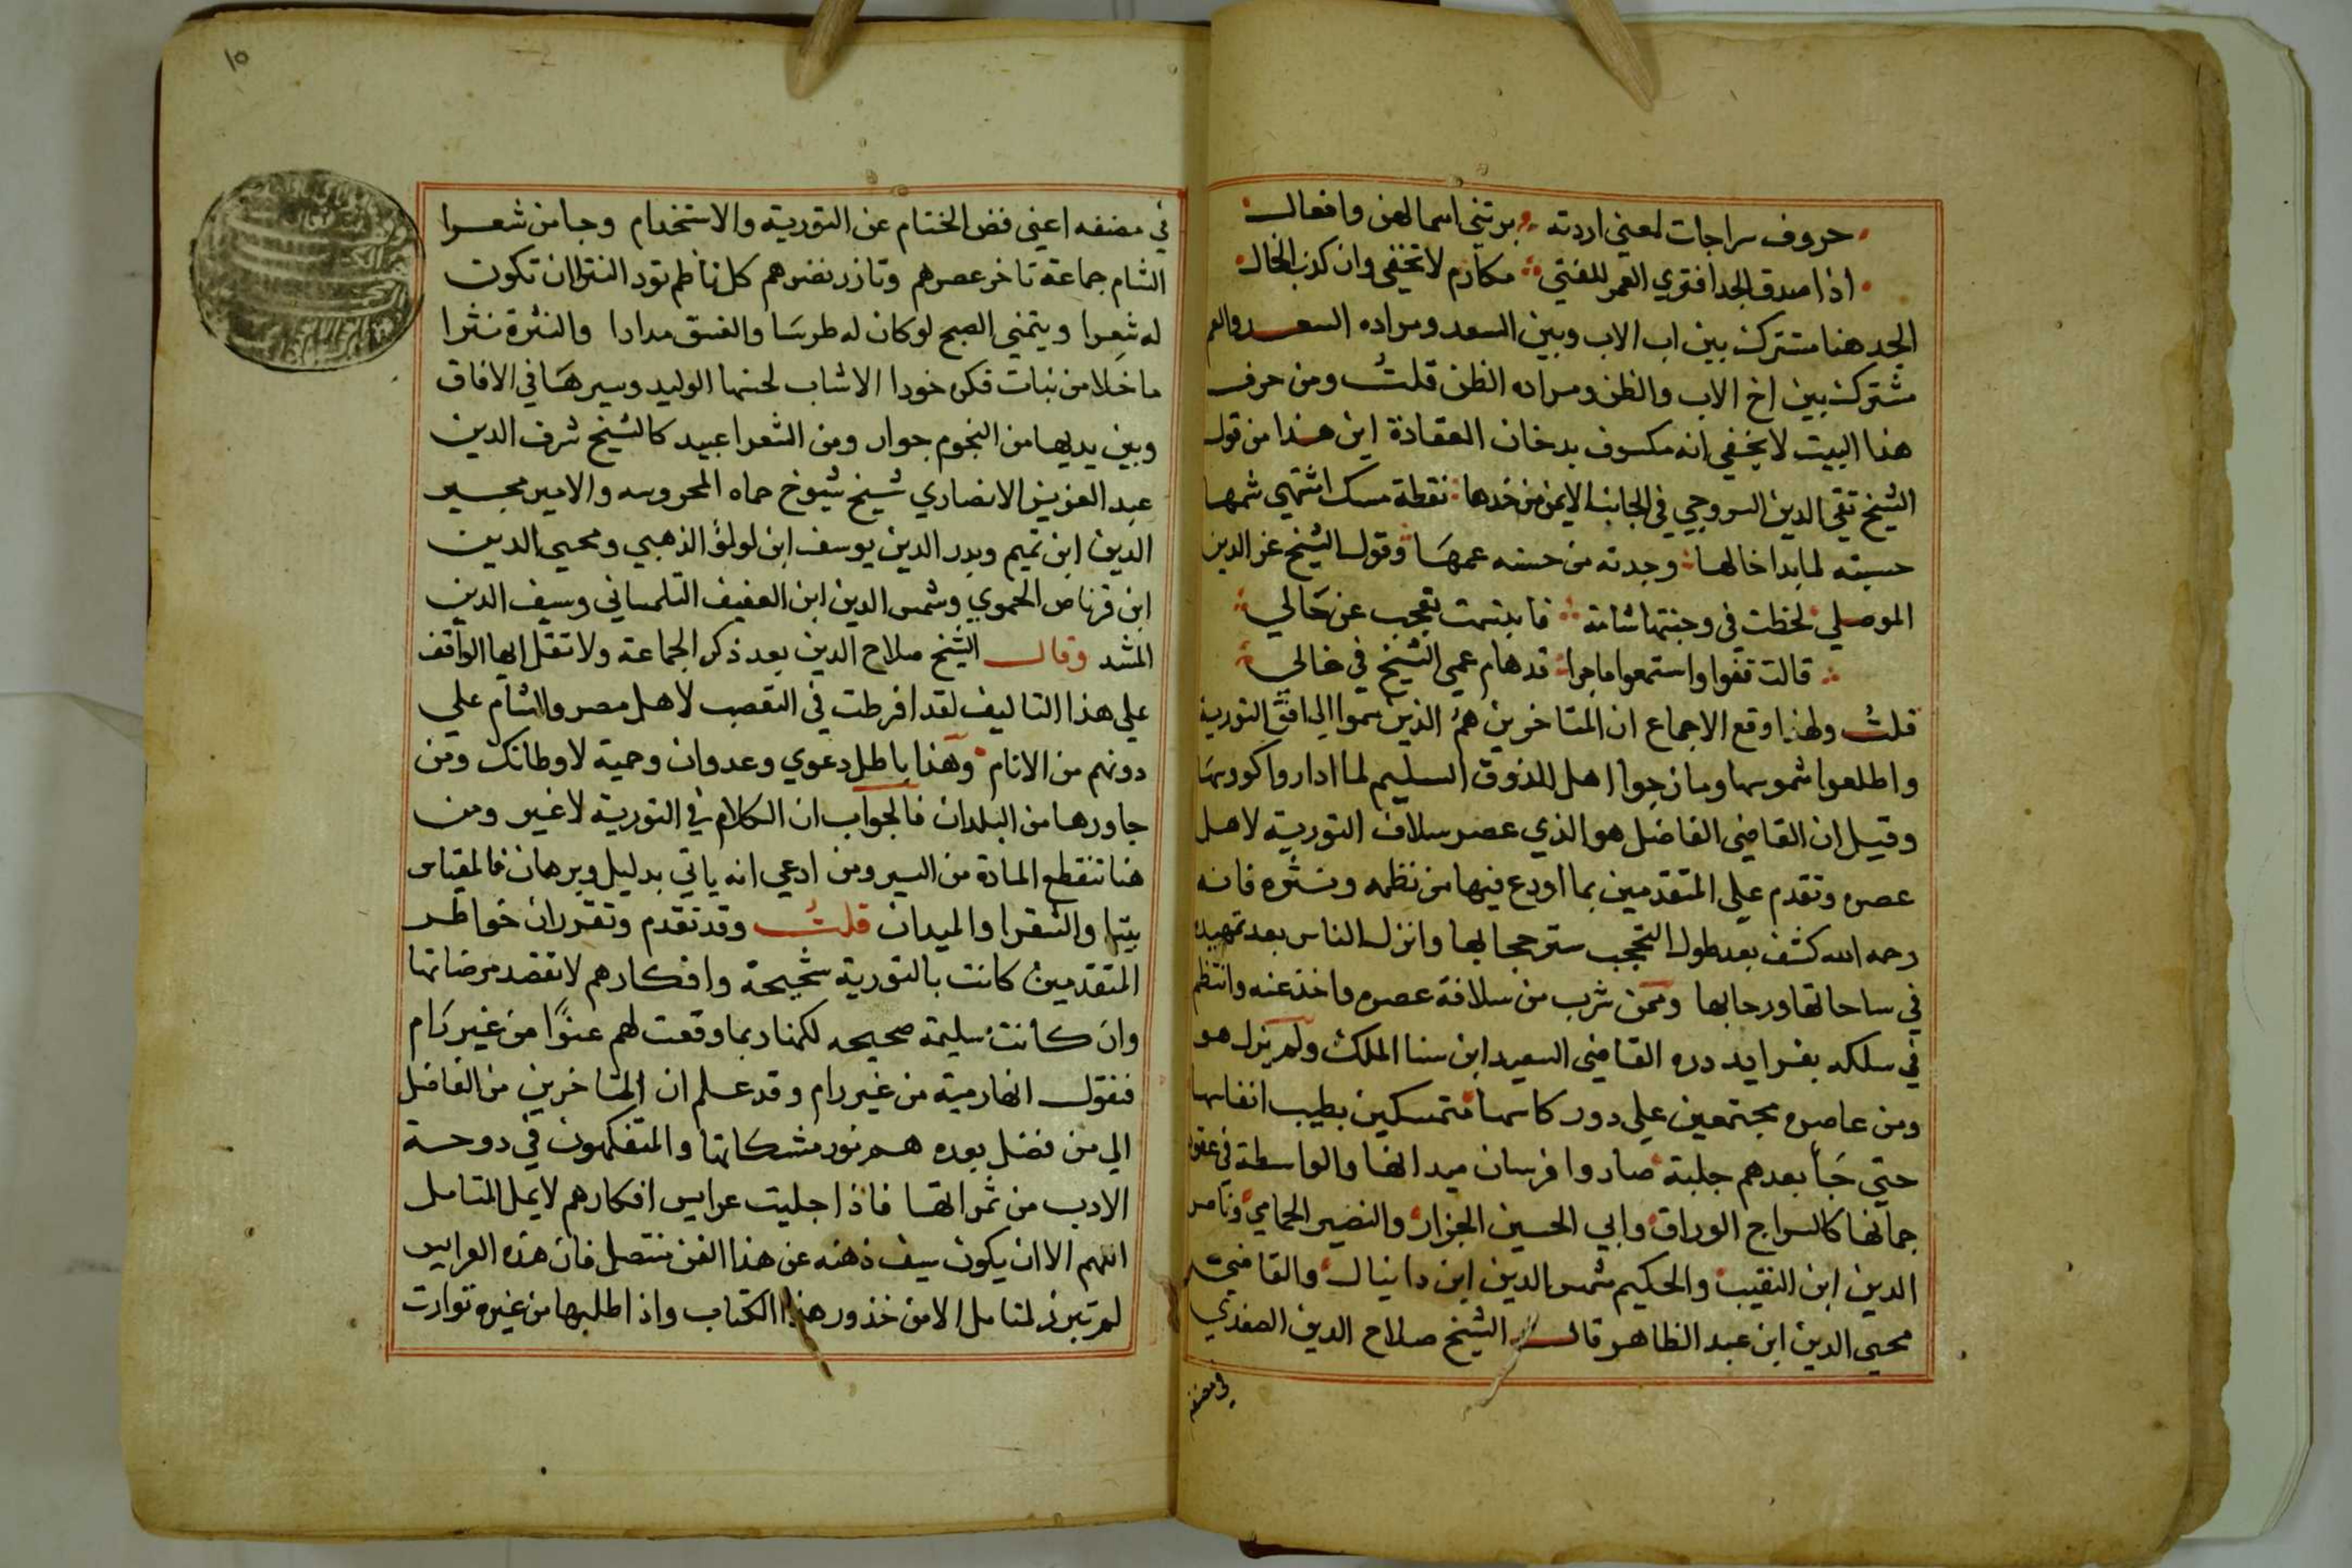 حروف سراجات لمعني اردته برتني اسما لهن وافعال
اذا صدق الجد افتري العم للفتي مكارم لا تخفي وان كذب الخال
الجد هنا مشترك بين اب الاب وبين السعد ومراده السعد والعم
مشترك بين اخ الاب والظن ومراده الظن قلت ومن حرف
هذا البيت لا يخفي انه مكسوف بدخان العقادة اين هذا من قول
الشيخ تقي الدين السروجي في الجانب الايمن من خدها نقطة مسك اشتهي شمها
حسبته لما بدا خالها وجدته من حسنه عمها وقول الشيخ عز الدين
الموصلي لحظت في وجنتها شامة فابتسمت تعجب عن حالي
قالت قفوا واستمعوا ما جرا قد هام عمي الشيخ في خالي
قلت ولهذا وقع الاجماع ان المتاخرين هم الذين سموا الي افق التورية
واطلعوا شموسها ومازجوا اهل الذوق السليم لما اداروا كوسها
وقيل ان القاضي الفاضل هو الذي عصر سلاف التورية لاهل
عصره وتقدم علي المتقدمين بما اودع فيها من نظمه ونثره فانه
رحمه الله كشف بعد طول التحجب ستر حجابها وانزل الناس بعد تمهيده
في ساحاتها ورحابها وممن شرب من سلافة عصره واخذ عنه وانتظم
في سلكه بفرايد دره القاضي السعيد ابن سنا الملك ولم يزل هو
ومن عاصره مجتمعين علي دور كاسها متمسكين بطيب انفاسها
حتي جا بعدهم حلبة صاروا فرسان ميدانها والواسطة في عقود
جمانها كالسراج الوراق وابي الحسين الجزار والنصير الحمامي وناصر
الدين ابن النقيب والحكيم شمس الدين ابن دانيال والقاضي
محيي الدين ابن عبد الظاهر قال الشيخ صلاح الدين الصفدي
في مصنفه
١٥
في مصنفه اعني فض الختام عن التورية والاستخدام وجا من شعرا
الشام جماعة تاخر عصرهم وتازر نصرهم كل ناظم تود النثرا ان تكون
له شعرا ويتمني الصبح لو كان له طرسا والغسق مدادا والنثرة نثرا
ما خلا من نبات فكره خودا الا شاب لحسنها الوليد وسيرها في الافاق
وبين يديها من النجوم جوار ومن الشعرا عبيد كالشيخ شرف الدين
عبد العزيز الانصاري شيخ شيوخ حماه المحروسه والامير مجير
الدين ابن تميم وبدر الدين يوسف ابن لولؤ الذهبي ومحيي الدين
ابن قرناص الحموي وشمس الدين ابن العفيف التلمساني وسيف الدين
المشد وقال الشيخ صلاح الدين بعد ذكر الجماعة ولا تقل ايها الواقف
علي هذا التاليف لقد افرطت في التعصب لاهل مصر والشام علي
دونهم من الانام وهذا باطل دعوي وعدوان وحمية لاوطانك ومن
جاورها من البلدان فالجواب ان الكلام في التورية لا غير ومن
هنا تنقطع المادة من السير ومن ادعي انه ياتي بدليل وبرهان فالمقياس
بيننا والشقرا والميدان قلت وقد تقدم وتقرر ان خواطر
المتقدمين كانت بالتورية شحيحة وافكارهم لا تقصد مرضاتها
وان كانت سليمة صحيحه لكمنا ربما وقعت لهم عفوًا من غير رام
فنقول انها رمية من غير رام وقد علم ان المتاخرين من الفاضل
الي من فضل بعده هم نور مشكاتها والمتفكهون في دوحة
الادب من ثمراتها فاذا جليت عرايس افكارهم لا يمل المتامل
اللهم الا ان يكون سيف ذهنه عن هذا الفن منتصل فان هذه العرايس
لم تبرز لمتامل الا من خدور هذا الكتاب واذا طلبها من غيره توارت